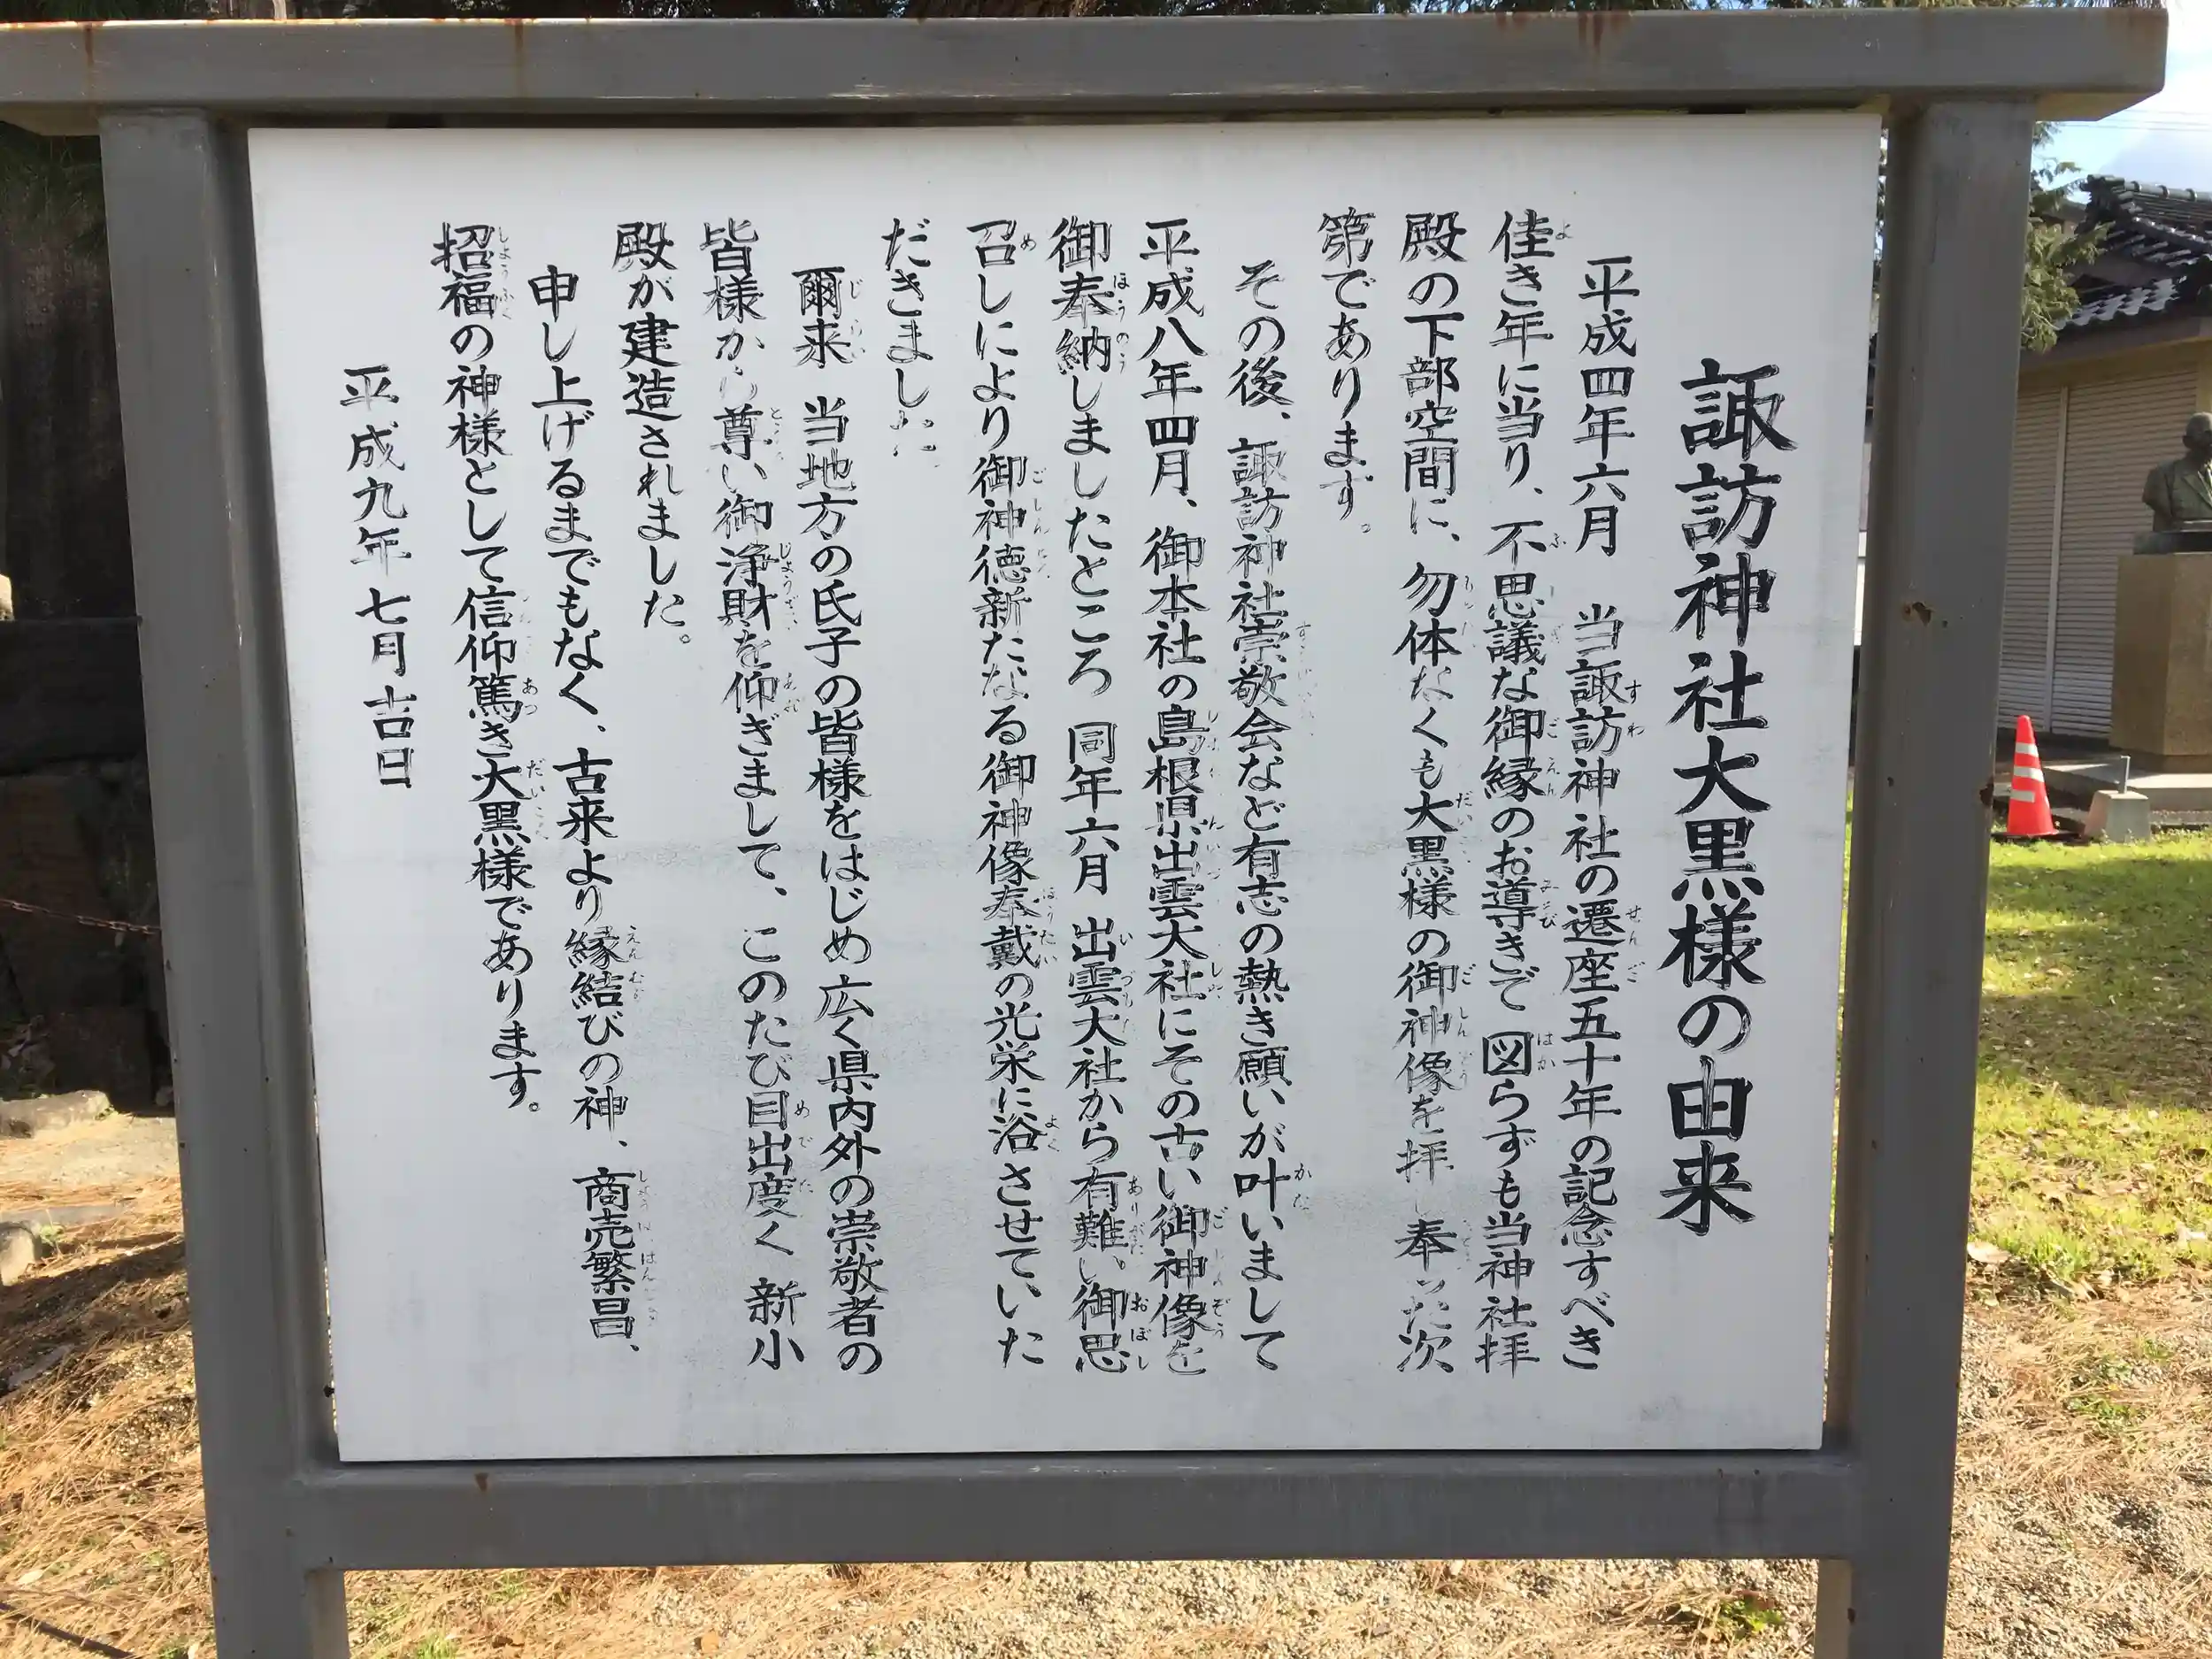 諏訪神社大黒様の由来
平成四年六月　当諏訪神社の遷座五十年の記念すべき
佳き年に当り、不思議な御縁のお導きで図らずも当神社拝
殿の下部空間に、勿体なくも大黒様の御神像を拝し奉った次
第であります。
その後、諏訪神社崇敬会など有志の熱き願いが叶いまして
平成八年四月、御本社の島根県出雲大社にその古い御神像を
御奉納しましたところ　同年六月　出雲大社から有難い御思
召しにより御神徳新たなる御神像奉戴の光栄に浴させていた
だきました
爾来　当地方の氏子の皆様をはじめ広く県内外の崇敬者の
皆様から尊い御浄財を仰ぎまして、このたび目出度く　新小
殿が建造されました。
申し上げるまでもなく、古来より縁結びの神、商売繁昌、
招福の神様として信仰篤き大黒様であります。
平成九年七月吉日